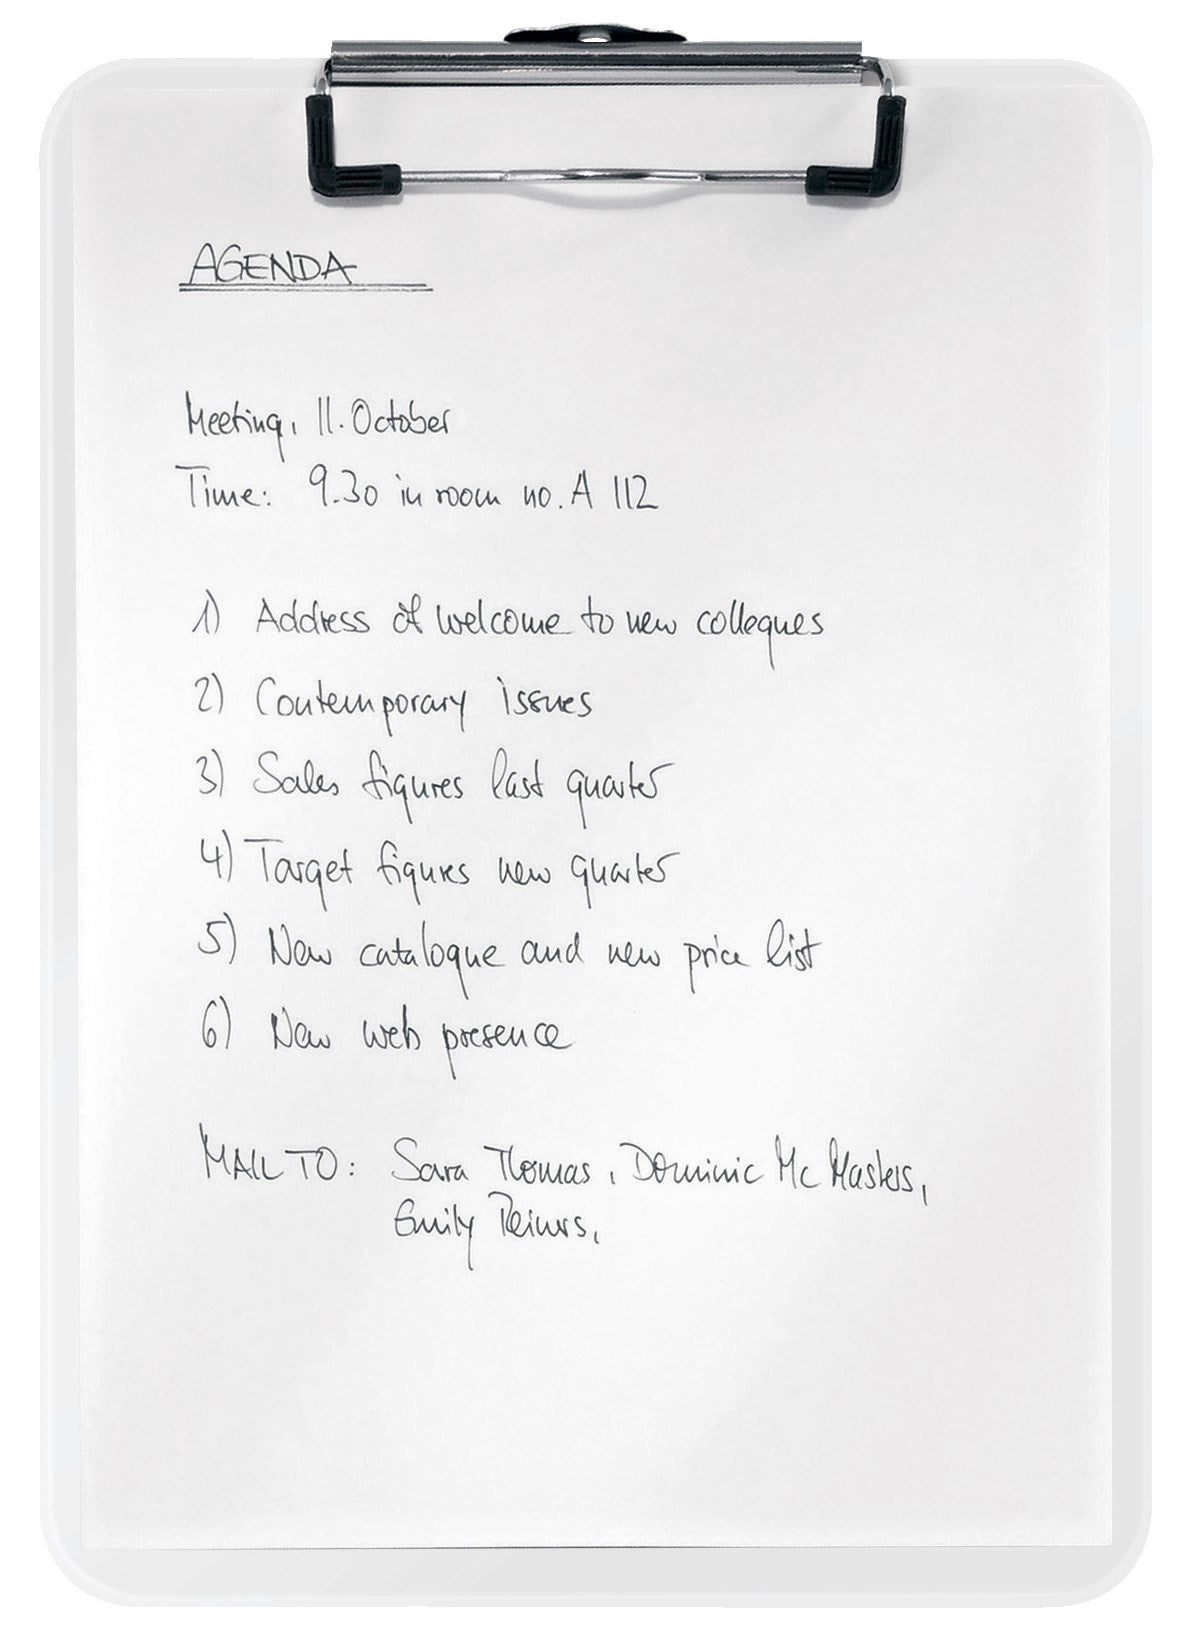 AGENDA
Meeting, 11. October
Time: 9.30 in room no. A 112
1) Address of welcome to new colleques
2) Contemporary issues
3) Sales figures last quarter
4) Target figures new quarter
5) New catalogue and new price list
6) New web presence
MAIL TO: Sara Thomas, Dominic Mc Masters,
Emily Reimers,